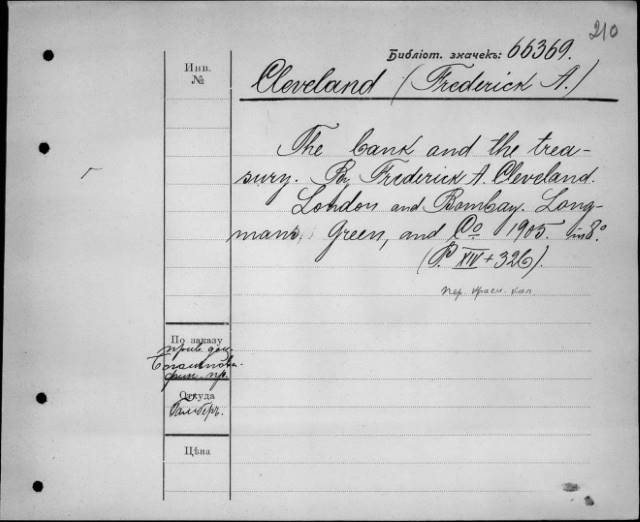 210
Библіот. значекъ: 66369.
Инв.
№
Cleveland (Frederick A.)
The bank and the trea-
sury. By Frederick A. Cleveland.
London and Bombay. Long-
mans, Green, and Co. 1905. in 8°.
(P. XIV + 326).
пер. красн. кал.
По заказу
прив. доц.
фин. пр.
Откуда
Гамберъ.
Цѣна